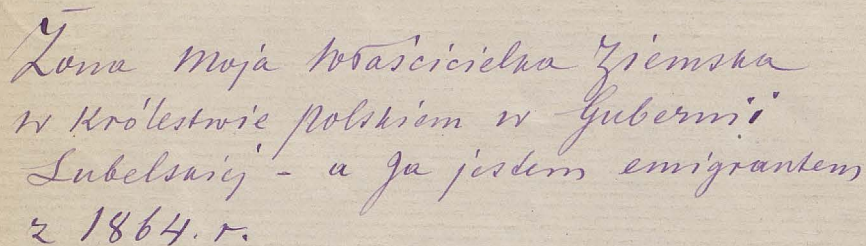 Żona moja Właścicielka Ziemska
w Królestwie polskiem w Gubernii
Lubelskiej - a Ja jestem emigrantem
z 1864. r.